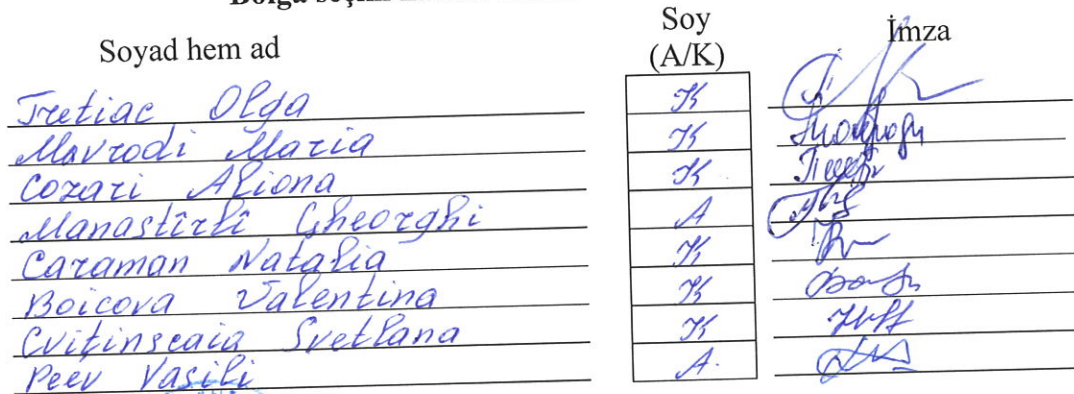 Soyad hem ad Soy (A/K) İmza
Tretiac Olga K
Mavrodi Maria K
Cozari Aliona K
Manastîrlî Gheorghi A
Caraman Natalia K
Boicova Valentina K
Cviţinscaia Svetlana K
Peev Vasili A.